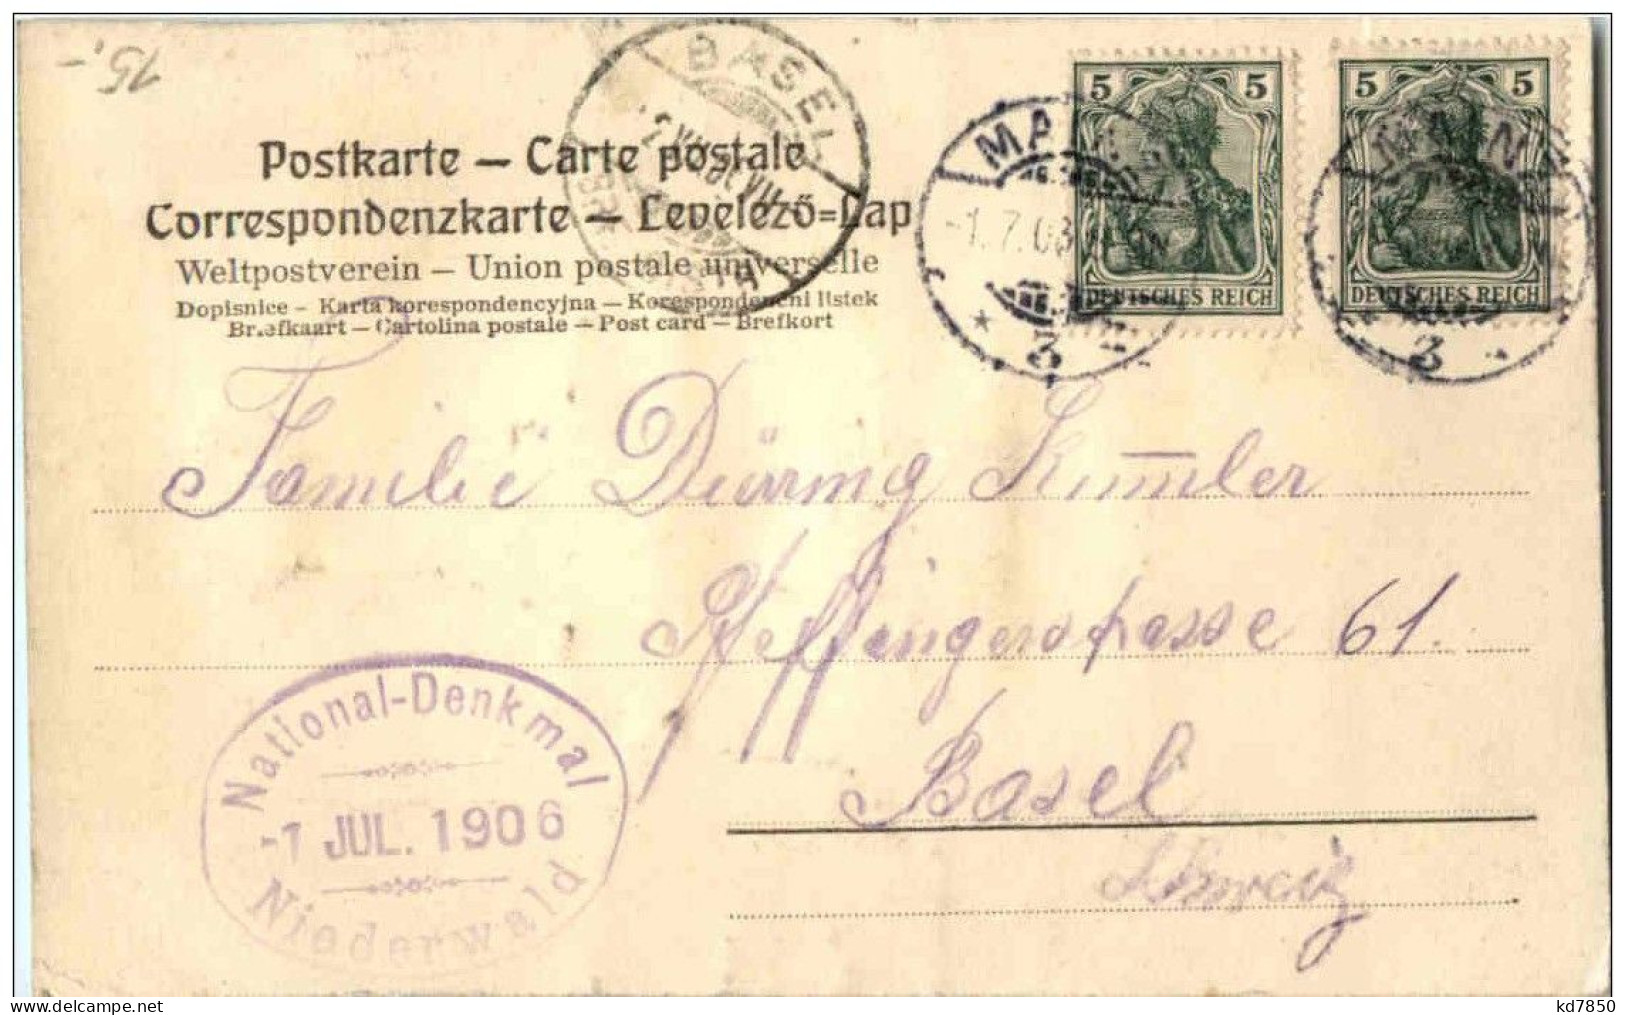 15.-
Postkarte — Carte postale
Correspondenzkarte — Levelező=Lap
Weltpostverein — Union postale universelle
Dopisnice – Karta korespondencyjna — Korespondenčni listek
Brefkaart — Cartolina postale — Post card — Brefkort
BASEL
MAINZ
-1.7.06
3
5 5
DEUTSCHES REICH
5 5
DEUTSCHES REICH
MAINZ
3
Familie Düring Kümler
Peffingerstrasse 61.
Basel
Schweiz
National-Denkmal
-1 JUL. 1906
Niederwald
delcampe.net
kd7850